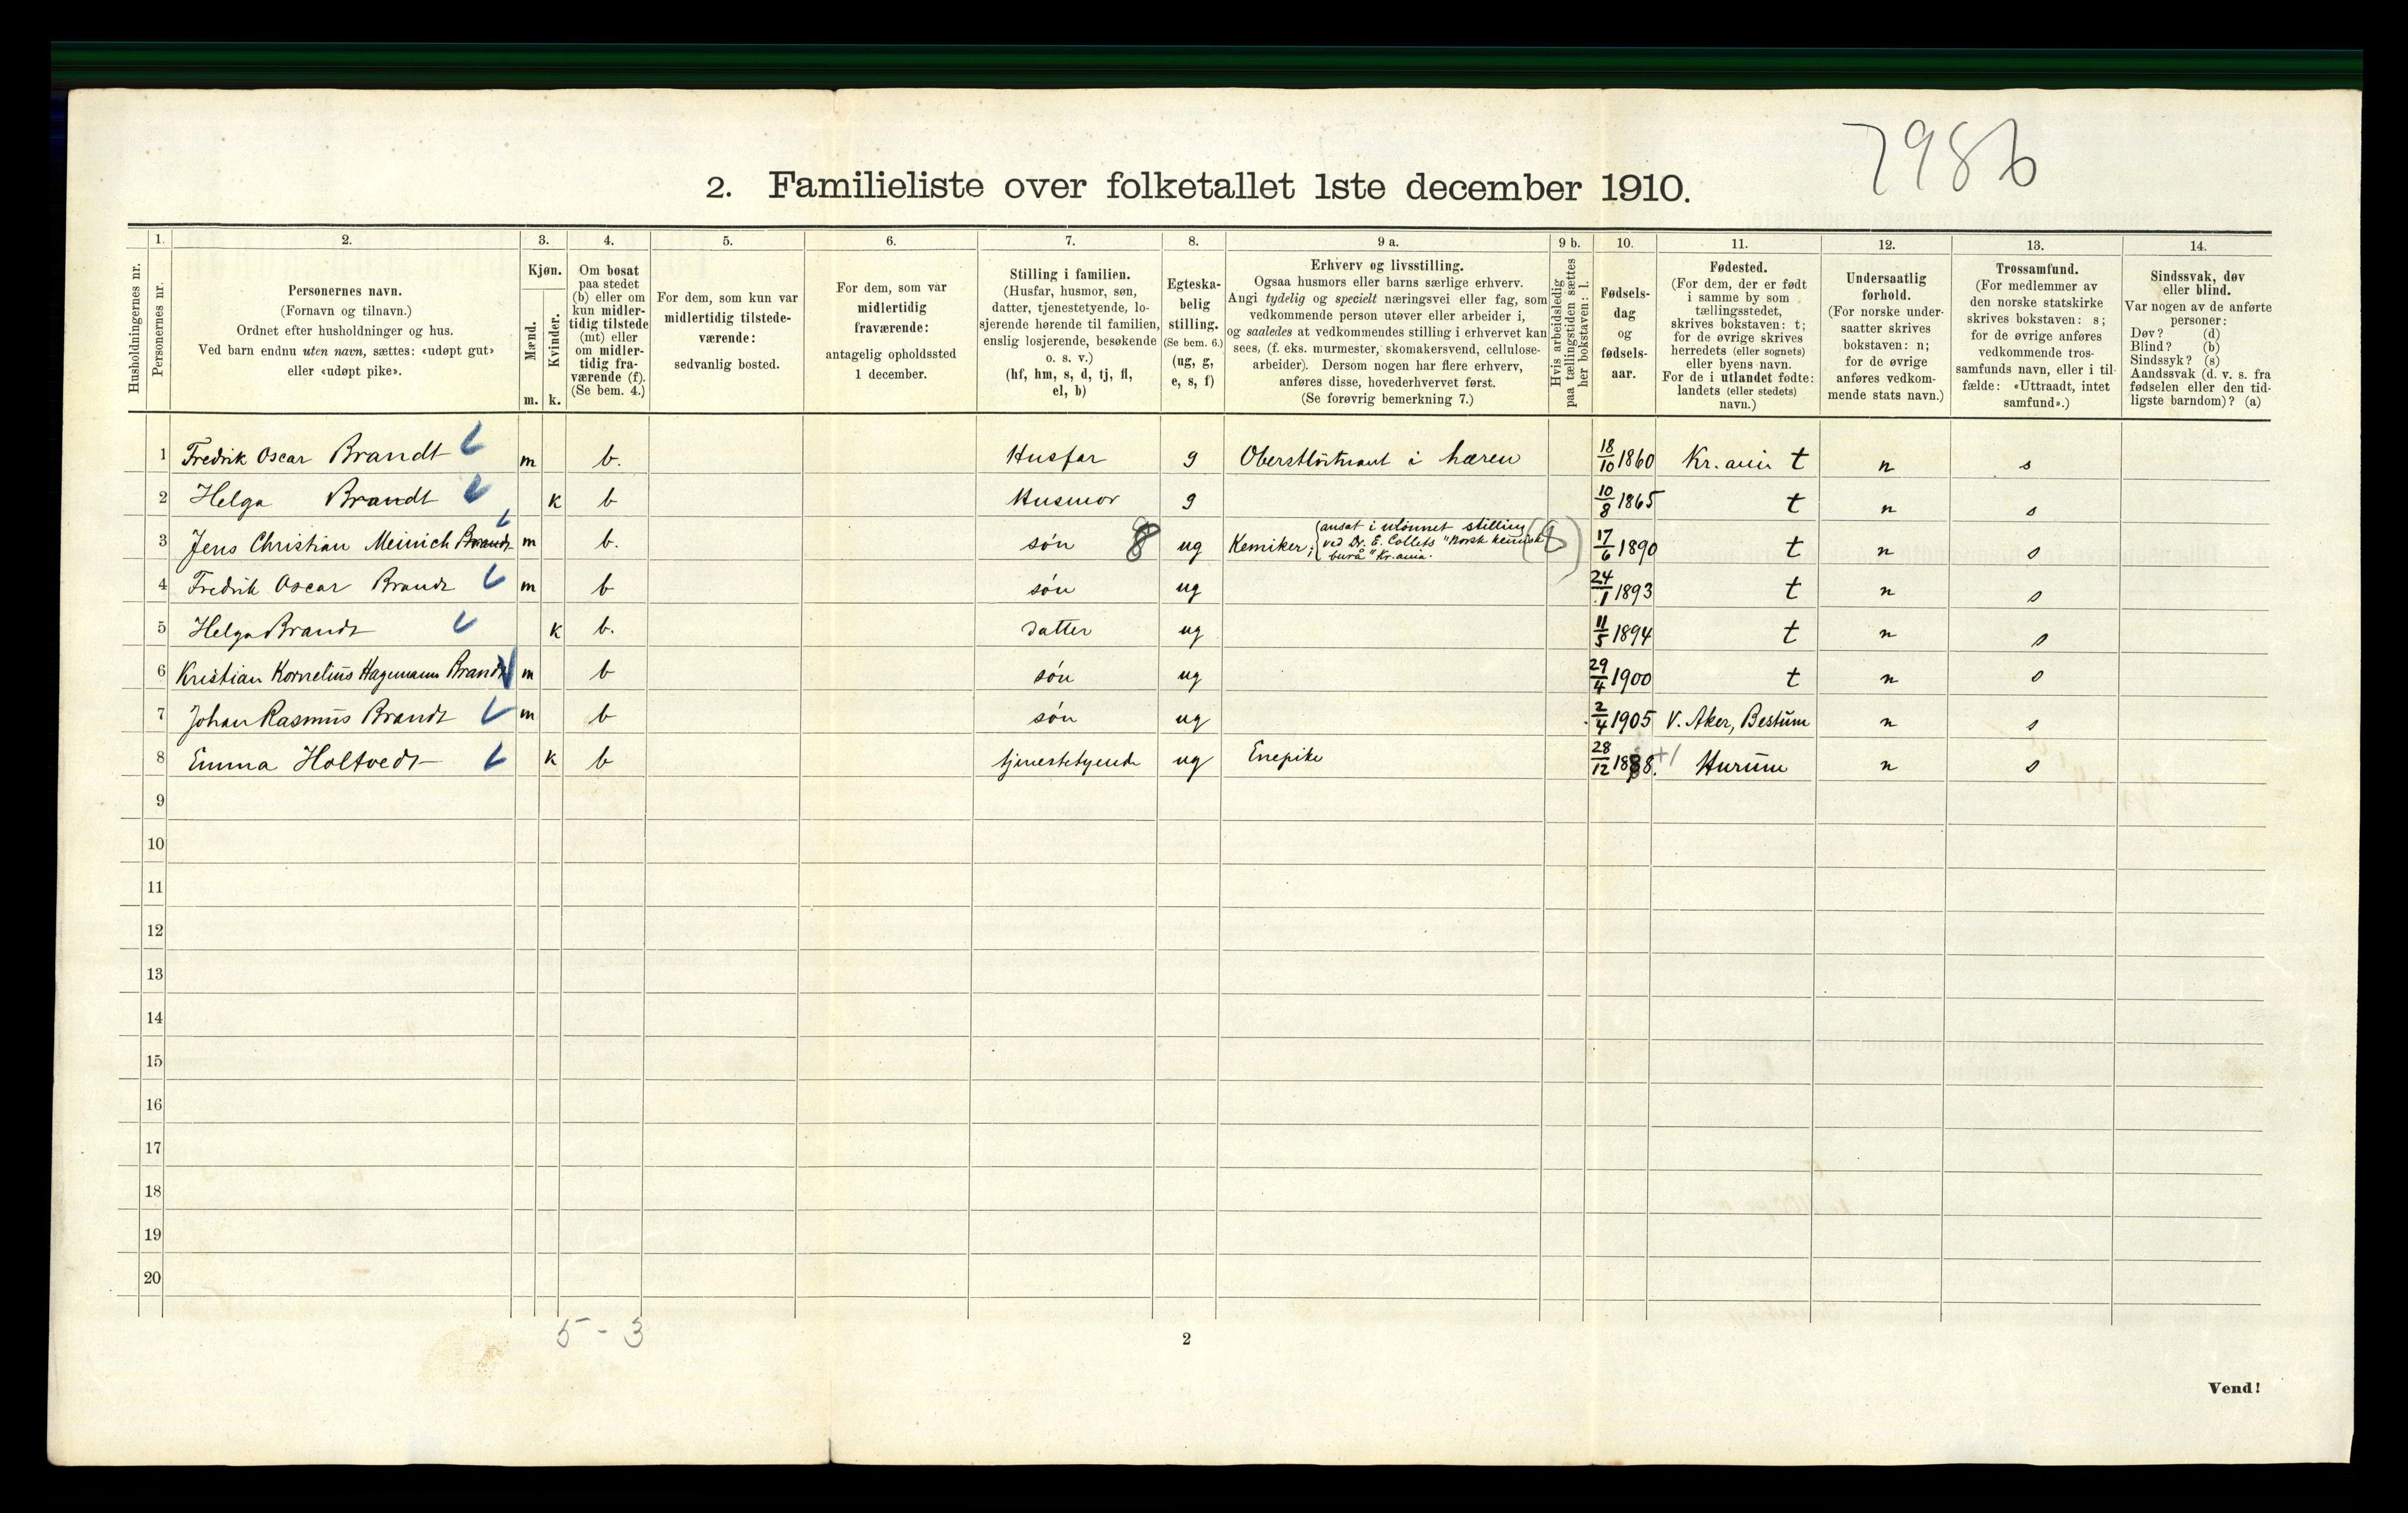 7986
2. Familieliste over folketallet 1ste december 1910.
Husholdningernes nr.
1.
Personernes nr.
2.
Personernes navn.
(Fornavn og tilnavn.)
Ordnet efter husholdninger og hus.
Ved barn endnu uten navn, sættes: «udøpt gut»
eller «udøpt pike».
3.
Kjøn.
Mænd.
m.
Kvinder.
k.
4.
Om bosat
paa stedet
(b) eller om
kun midler-
tidig tilstede
(mt) eller
om midler-
tidig fra-
værende (f).
(Se bem. 4.)
5.
For dem, som kun var
midlertidig tilstede-
værende:
sedvanlig bosted.
6.
For dem, som var
midlertidig
fraværende:
antagelig opholdssted
1 december.
7.
Stilling i familien.
(Husfar, husmor, søn,
datter, tjenestetyende, lo-
sjerende hørende til familien,
enslig losjerende, besøkende
o. s. v.)
(hf, hm, s, d, tj, fl,
el, b)
8.
Egteska-
belig
stilling.
(Se bem. 6.)
(ug, g,
e, s, f)
9 a.
Erhverv og livsstilling.
Ogsaa husmors eller barns særlige erhverv.
Angi tydelig og specielt næringsvei eller fag, som
vedkommende person utøver eller arbeider i,
og saaledes at vedkommendes stilling i erhvervet kan
sees, (f. eks. murmester, skomakersvend, cellulose-
arbeider). Dersom nogen har flere erhverv,
anføres disse, hovederhvervet først.
(Se forøvrig bemerkning 7.)
9 b.
Hvis arbeidsledig
paa tællingstiden sættes
her bokstaven: l.
10.
Fødsels-
dag
og
fødsels-
aar.
11.
Fødested.
(For dem, der er født
i samme by som
tællingsstedet,
skrives bokstaven: t;
for de øvrige skrives
herredets (eller sognets)
eller byens navn.
For de i utlandet fødte:
landets (eller stedets)
navn.)
12.
Undersaatlig
forhold.
(For norske under-
saatter skrives
bokstaven: n;
for de øvrige
anføres vedkom-
mende stats navn.)
13.
Trossamfund.
(For medlemmer av
den norske statskirke
skrives bokstaven: s;
for de øvrige anføres
vedkommende tros-
samfunds navn, eller i til-
fælde: «Uttraadt, intet
samfund».)
14.
Sindssvak, døv
eller blind.
Var nogen av de anførte
personer:
Døv? (d)
Blind? (b)
Sindssyk? (s)
Aandssvak (d. v. s. fra
fødselen eller den tid-
ligste barndom)? (a)
1 Fredrik Oscar Brandt m b. Husfar g Oberstløitnant i hæren 18/10 1860 Kr.ania t n s
2 Helga Brandt k b Husmor g 10/8 1865 t n s
3 Jens Christian Meinich Brandt m b. søn 8 ug Kemiker; (ansat i ulønnet stilling ved Dr. E. Colletts "Norsk kemisk burå" Kr.ania. (8) 17/6 1890 t n s
4 Fredrik Oscar Brandt m b søn ug 24/1 1893 t n s
5 Helga Brandt k b. datter ug 11/5 1894 t n s
6 Kristian Kornelius Hagemann Brandt m b søn ug 29/4 1900 t n s
7 Johan Rasmus Brandt m b søn ug 2/4 1905 V. Aker, Bestum n s
8 Emma Holtvedt k b tjenestetyende ug Enepike 28/12 1888. +1 Hurum n s
9
10
11
12
13
14
15
16
17
18
19
20
5 - 3
2
Vend!